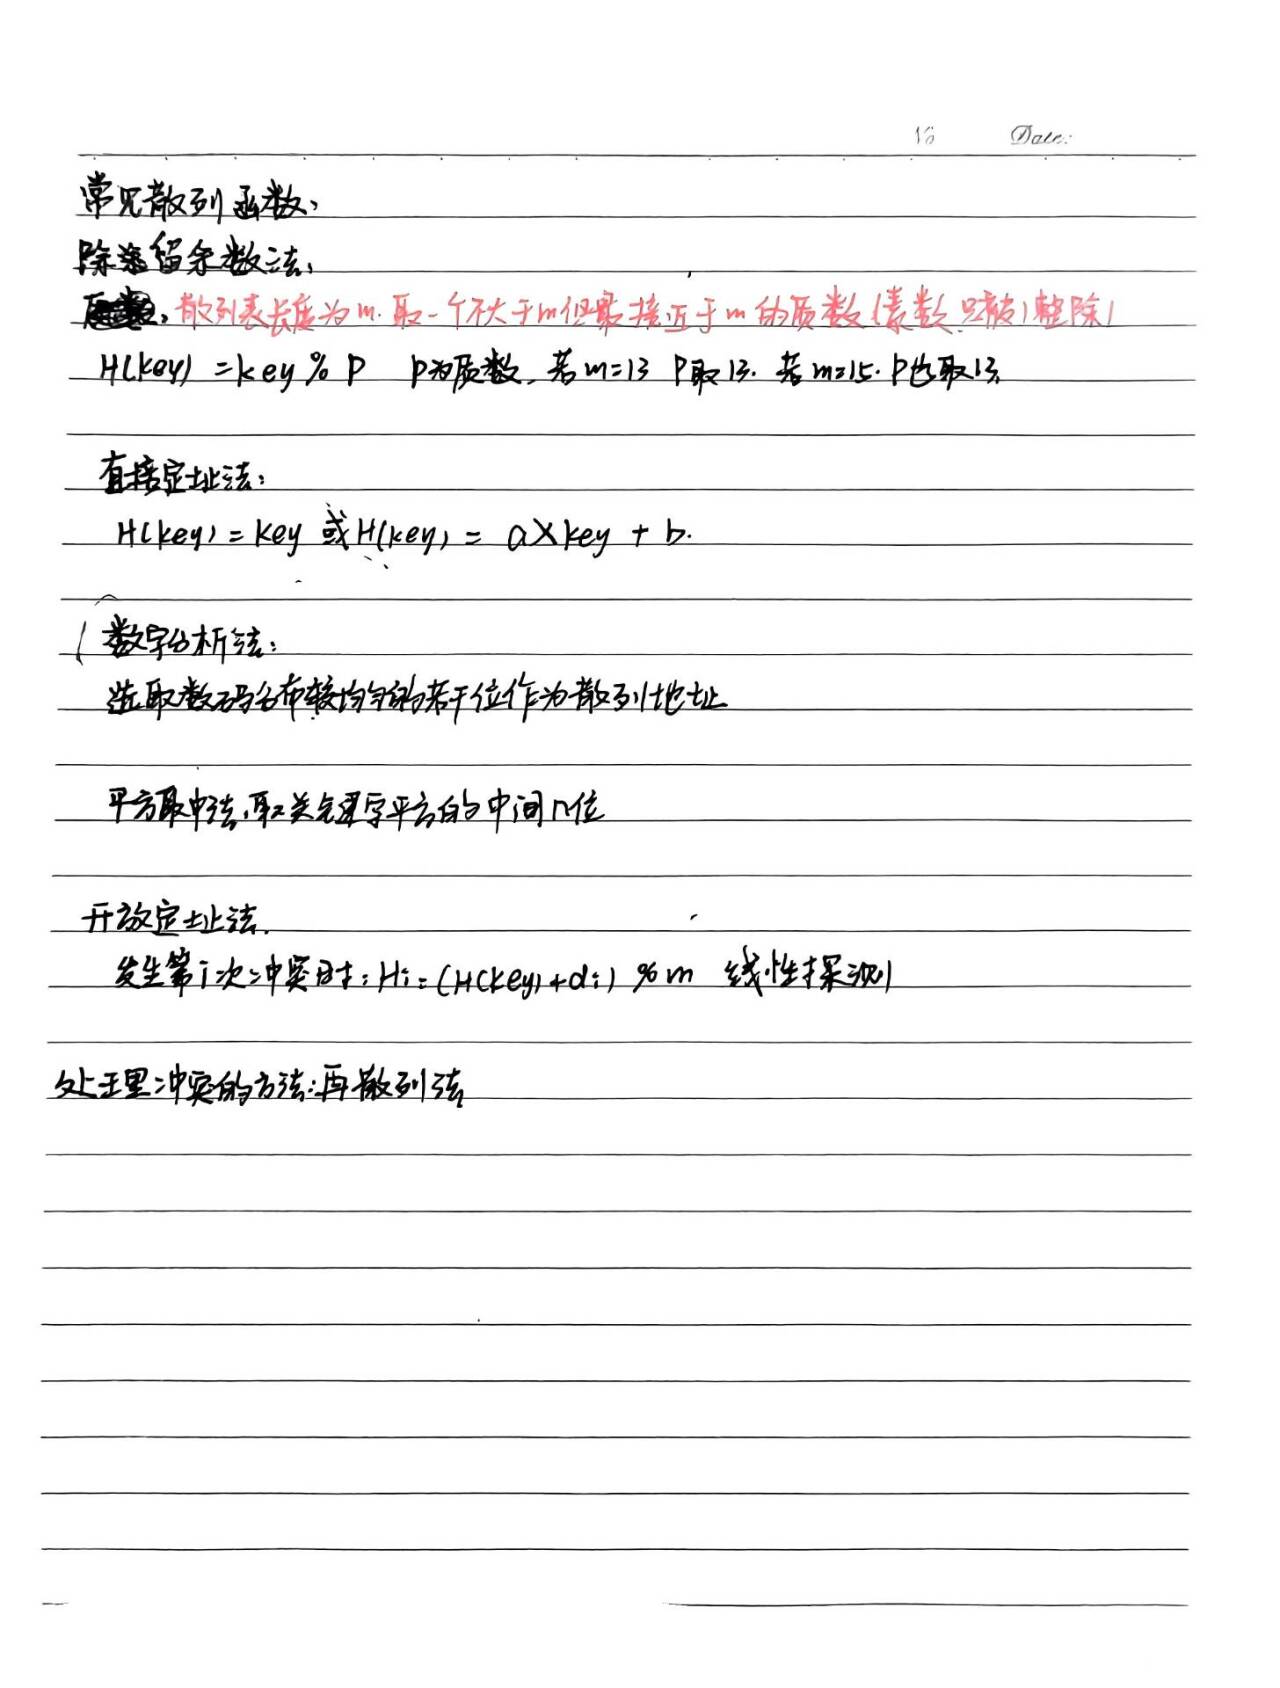 No Date:
常见散列函数:
除留余数法:
散列表长度为m.取一个不大于m但最接近于m的质数(素数 只被1整除)
H(key) = key % P P为质数. 若m=13 P取13. 若m=15. P也取13.
直接定址法:
H(key) = key 或 H(key) = a×key + b.
数字分析法:
选取数码分布较均匀的若干位作为散列地址
平方取中法.取关键字平方的中间几位
开放定址法.
发生第i次冲突时: Hi = (H(key)+di) % m 线性探测
处理冲突的方法:再散列法